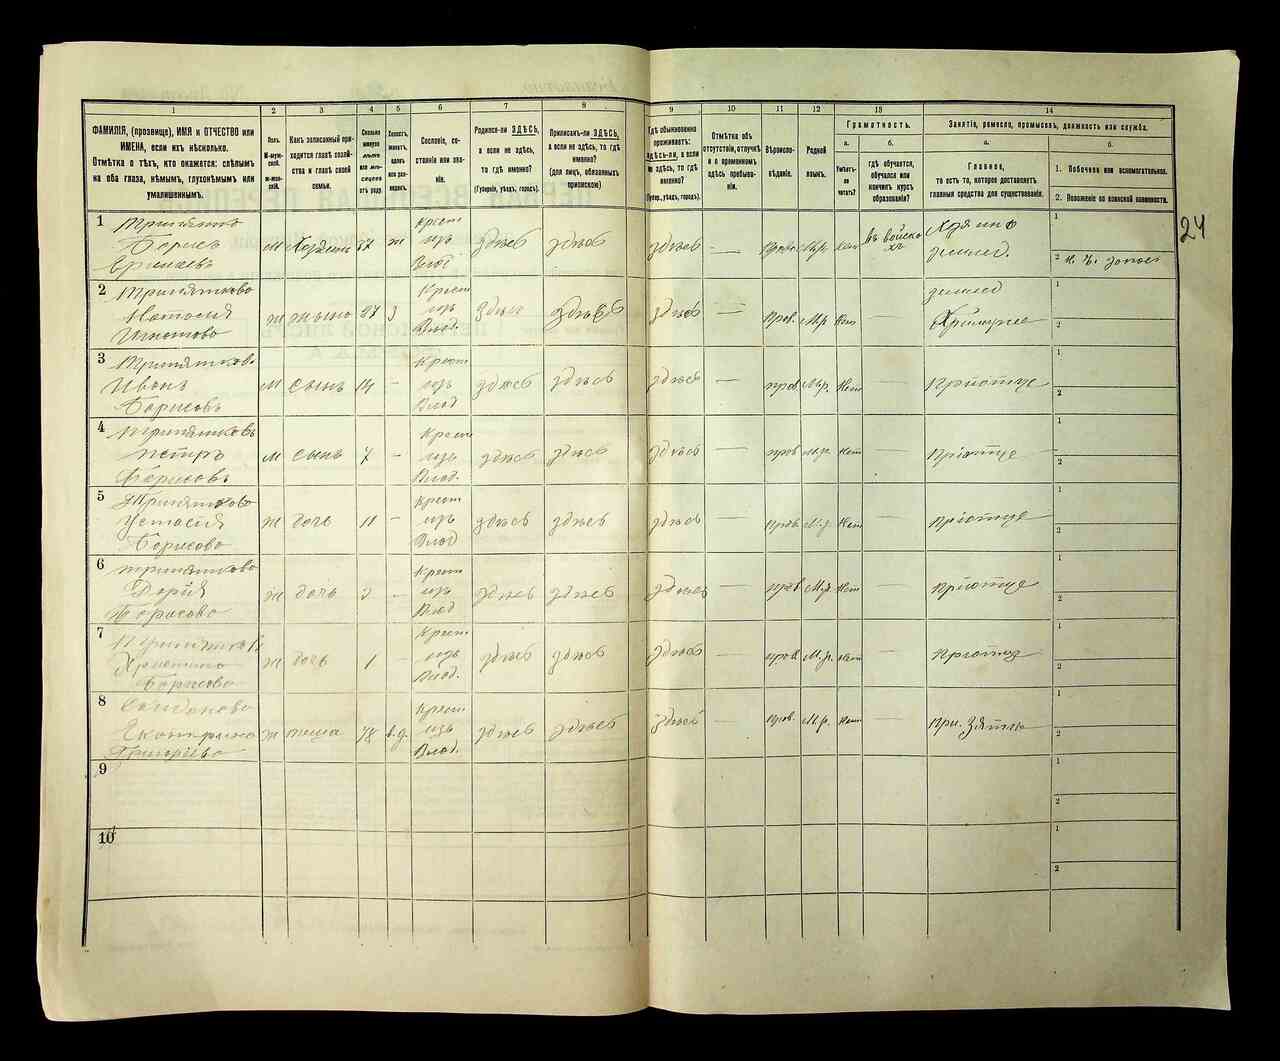 1 2 3 4 5 6 7 8 9 10 11 12 13 14
ФАМИЛІЯ, (прозвище), ИМЯ и ОТЧЕСТВО или
ИМЕНА, если ихъ нѣсколько.
Отмѣтка о тѣхъ, кто окажется: слѣпымъ
на оба глаза, нѣмымъ, глухонѣмымъ или
умалишеннымъ.
Полъ.
М-мужской.
Ж-женскій.
Какъ записанный приходится главѣ хозяйства и главѣ своей семьи.
Сколько минуло лѣтъ или мѣсяцевъ отъ роду.
Холостъ, женатъ, вдовъ или разведенъ.
Сословіе, состояніе или званіе.
Родился-ли ЗДѢСЬ,
а если не здѣсь,
то гдѣ именно?
(Губернія, уѣздъ, городъ).
Приписанъ-ли ЗДѢСЬ,
а если не здѣсь, то гдѣ
именно?
(для лицъ, обязанныхъ
припискою)
Гдѣ обыкновенно
проживаетъ:
здѣсь-ли, а если
не здѣсь, то гдѣ
именно?
(Губер., уѣздъ, городъ).
Отмѣтка объ
отсутствіи, отлучкѣ
и о временномъ
здѣсь пребываніи.
Вѣроисповѣданіе.
Родной
языкъ.
Грамотность.
а.
Умѣетъ-ли
читать?
б.
гдѣ обучается,
обучался или
кончилъ курсъ
образованія?
Занятіе, ремесло, промыселъ, должность или служба.
а.
Главное,
то есть то, которое доставляетъ
главныя средства для существованія.
б.
1. Побочное или вспомогательное.
2. Положеніе по воинской повинности.
24
1
Борисъ
м Хозяинъ 37 ж
Крест
изъ
Влад
здѣсь здѣсь здѣсь —
въ войскахъ
Хозяинъ
землед.
2
Наталія
ж жена 37 з
Крест
изъ
Влад.
здѣсь здѣсь здѣсь —
прав. М.р. Нет —
землед
При мужѣ
3
Иванъ
Борисовъ
м сынъ 14 -
Крест
изъ
Влад
здѣсь здѣсь здѣсь —
прав М.р. Нет —
При отцѣ
4
Петръ
Борисовъ
м сынъ 7 -
Крест
изъ
Влад.
здѣсь здѣсь здѣсь —
прав М.р. Нет —
При отцѣ
5
Борисова
ж дочь 11 -
Крест
изъ
Влад
здѣсь здѣсь здѣсь —
прав. М.р. Нет —
При отцѣ
6
Дарія
Борисова
ж дочь 3 -
Крест
изъ
Влад
здѣсь здѣсь здѣсь —
прав М.р. Нет —
При отцѣ
7
Христина
Борисова
ж дочь 1 -
Крест
изъ
Влад.
здѣсь здѣсь здѣсь —
прав М.р. Нет —
При отцѣ
8
Екатерина
Григоріева
ж теща 78 в.д.
Крест
изъ
Влад.
здѣсь здѣсь здѣсь —
прав. М.р. Нет —
При. Зятѣ
9
10